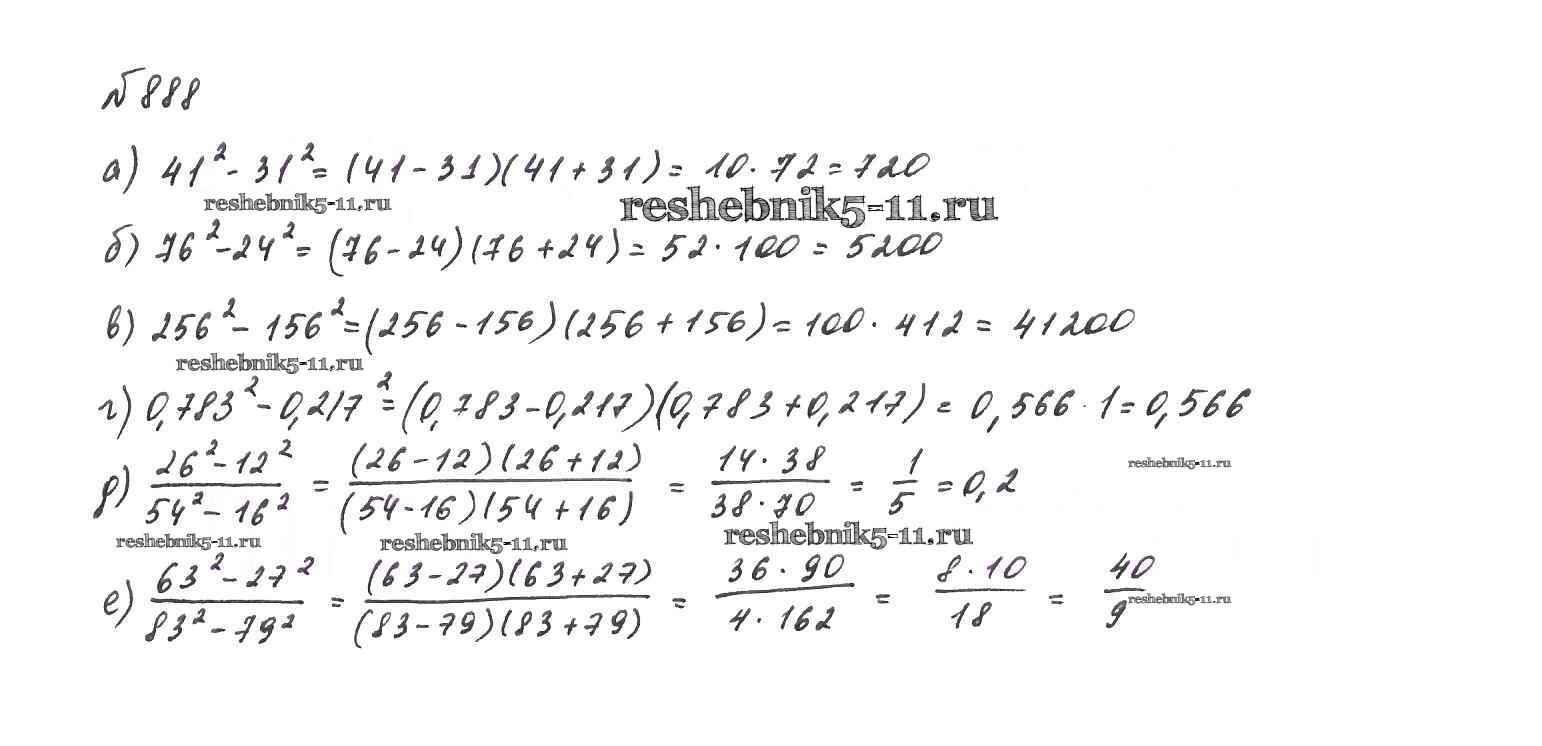 № 888
а) 41² - 31² = (41 - 31)(41 + 31) = 10 · 72 = 720
reshebnik5-11.ru reshebnik5-11.ru
б) 76² - 24² = (76 - 24)(76 + 24) = 52 · 100 = 5200
в) 256² - 156² = (256 - 156)(256 + 156) = 100 · 412 = 41200
reshebnik5-11.ru
г) 0,783² - 0,217² = (0,783 - 0,217)(0,783 + 0,217) = 0,566 · 1 = 0,566
д) (26² - 12²)/(54² - 16²) = ((26 - 12)(26 + 12))/((54 - 16)(54 + 16)) = (14 · 38)/(38 · 70) = 1/5 = 0,2
reshebnik5-11.ru
reshebnik5-11.ru reshebnik5-11.ru reshebnik5-11.ru
е) (63² - 27²)/(83² - 79²) = ((63 - 27)(63 + 27))/((83 - 79)(83 + 79)) = (36 · 90)/(4 · 162) = (8 · 10)/18 = 40/9
reshebnik5-11.ru